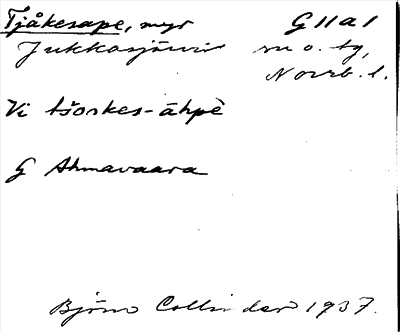 Tjåkesape, myr G 11 a 1
Jukkasjärvi sn o. tg,
Norrb. l.
Vi tšorkes-āhpè
G Ahmavaara
Björn Collinder 1937.